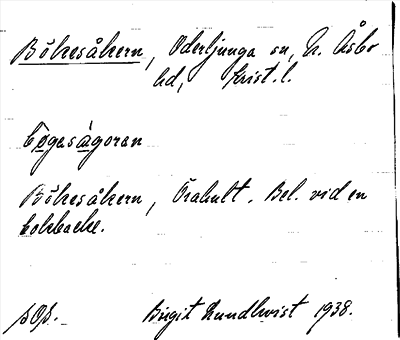 Bökesåkern, Oderljunga sn, N. Åsbo
hd, Krist. l.
bøgasågoran
Bökesåkern, Örahult. Bel. vid en
bokbacke.
Birgit Lundkvist 1938.